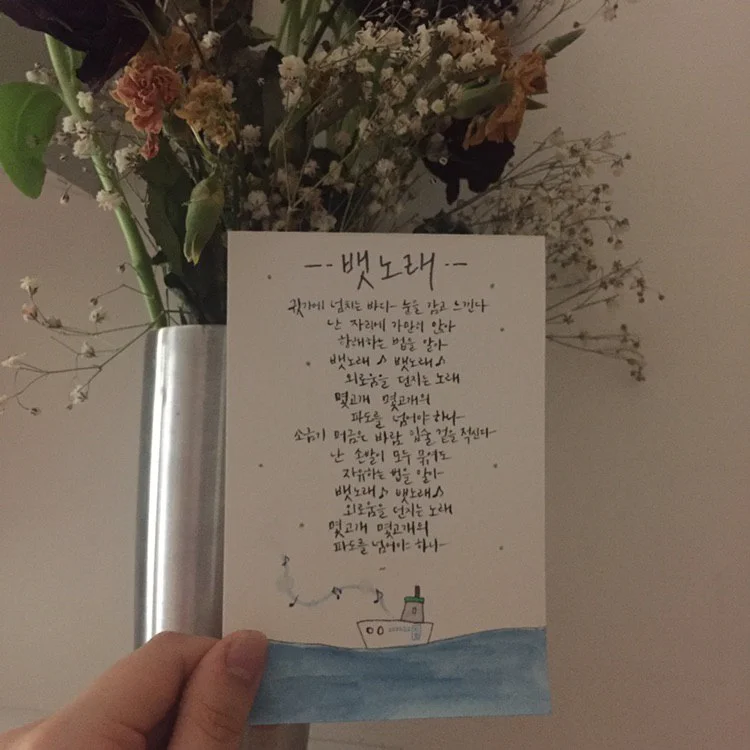 --뱃노래--
귓가에 넘치는 바다 눈을 감고 느낀다
난 자리에 가만히 앉아
항해하는 법을 알아
뱃노래♪ 뱃노래♪
외로움을 던지는 노래
몇고개 몇고개의
파도를 넘어야 하나
소금기 머금은 바람 입술 겉을 적신다
난 손발이 모두 묶여도
자유하는 법을 알아
뱃노래♪ 뱃노래♪
외로움을 던지는 노래
몇고개 몇고개의
파도를 넘어야 하나